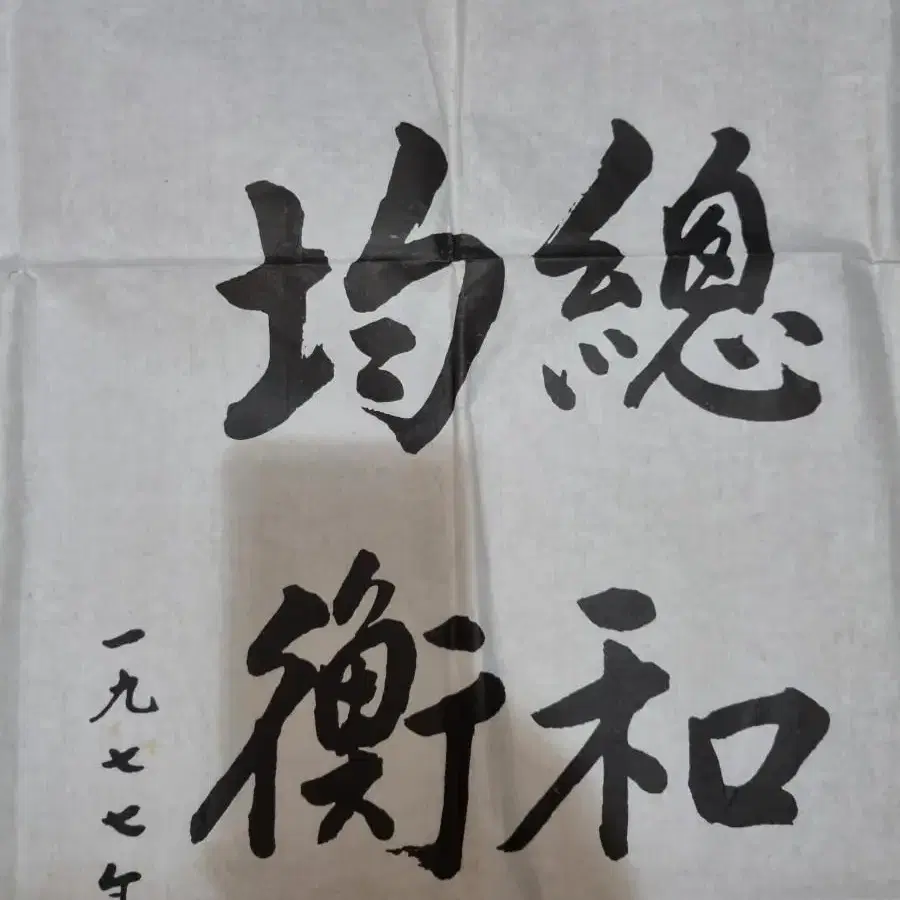 總和
均衡
一九七七年